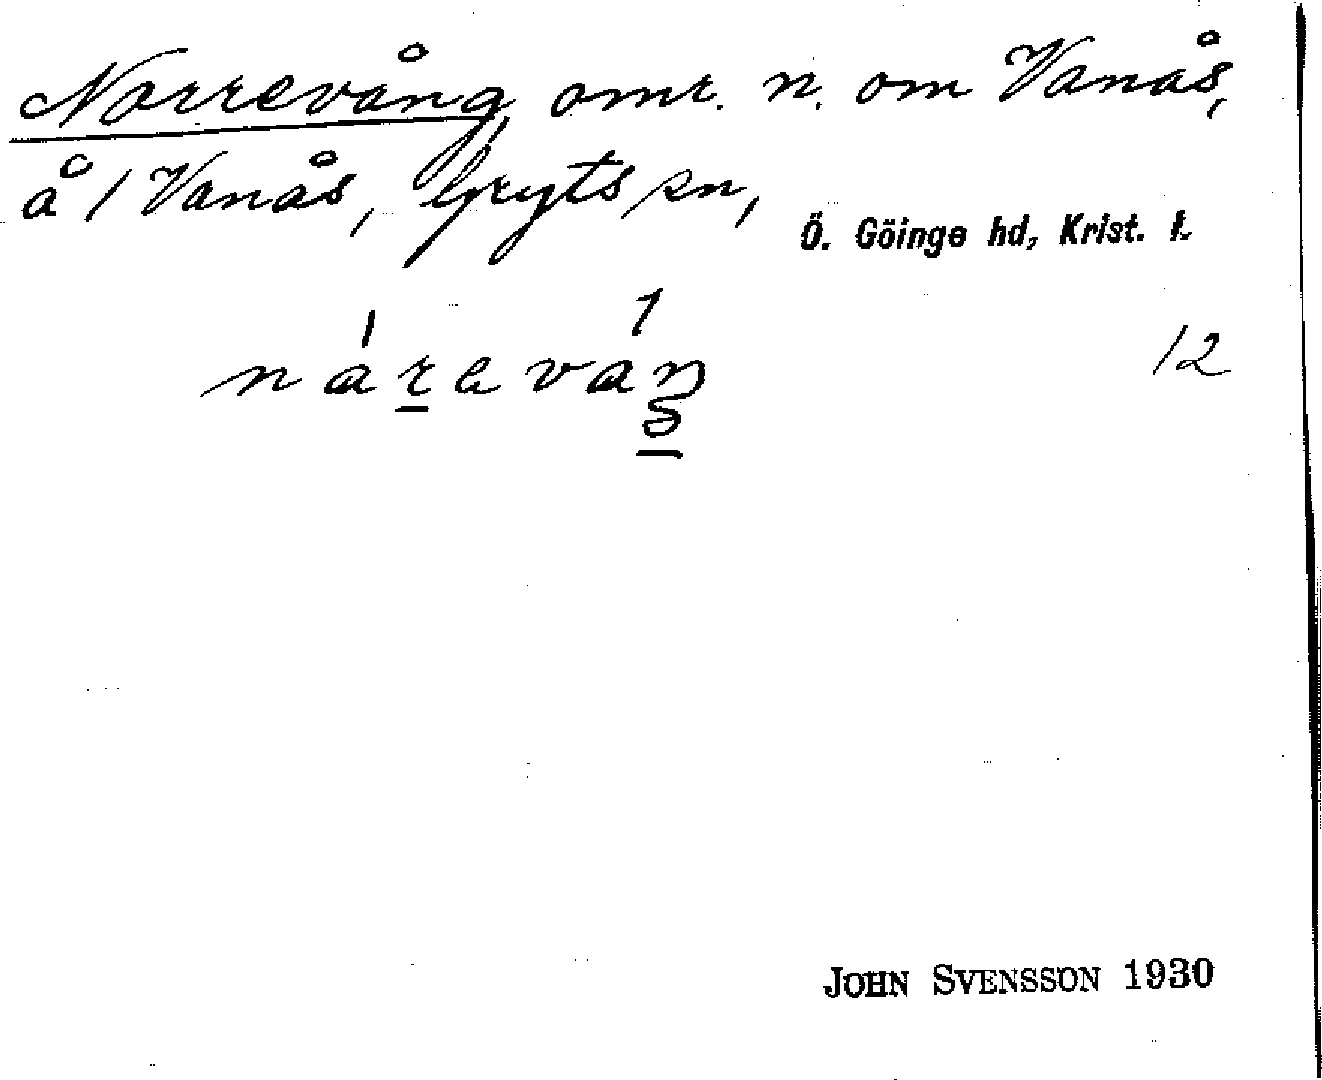 Norrevång, omr. n. om Vanås,
å 1 Vanås, Gryts sn,
Ö. Göinge hd, Krist. l.
12
JOHN SVENSSON 1930